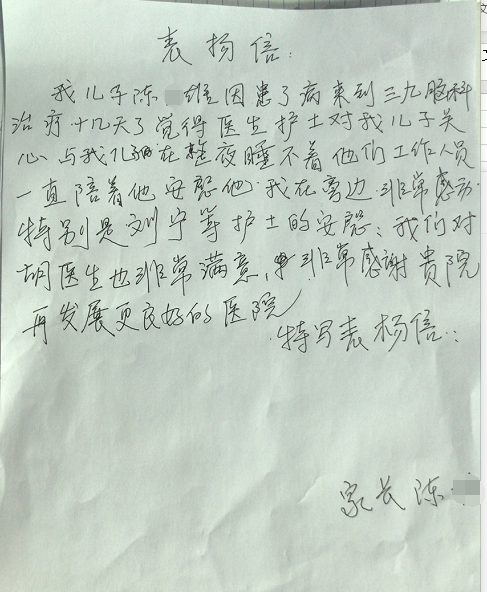 表扬信:
我儿子陈 维因患了病来到三九脑科
治疗十几天了觉得医生护士对我儿子关
心与我儿 在整夜睡不着他们工作人员
一直陪着他安慰他.我在旁边.非常感动.
特别是刘宁等护士的安慰:我们对
胡医生也非常满意,非常感谢贵院
再发展更良好的医院
特写表杨信:
家长陈